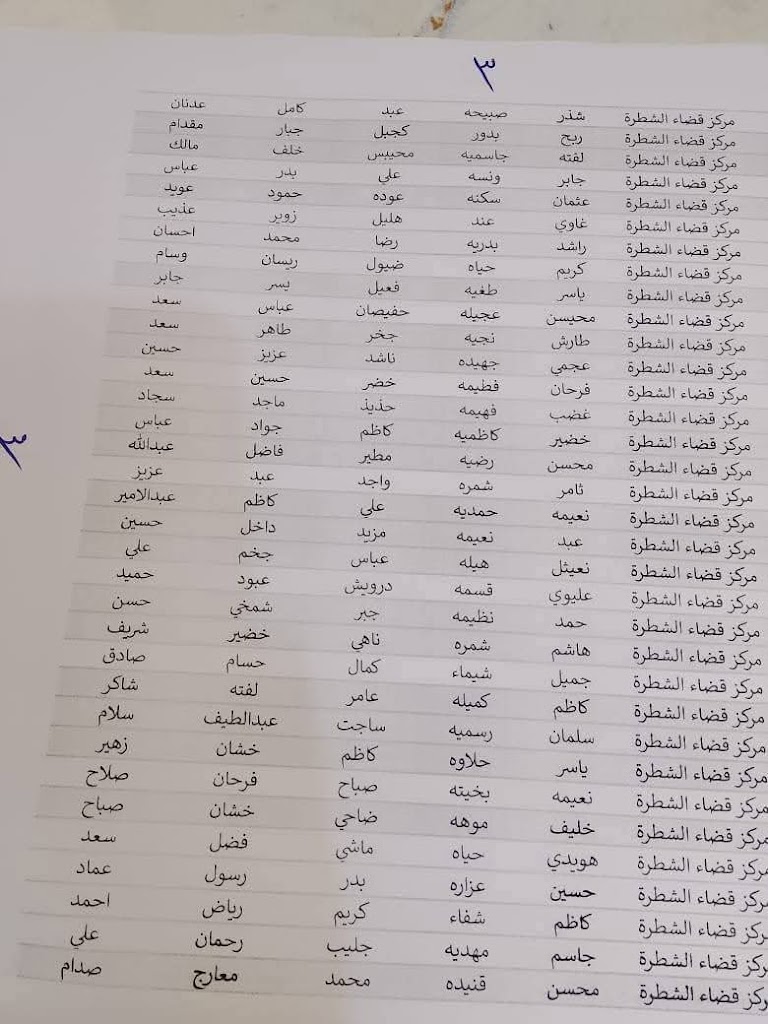 ٣
مركز قضاء الشطرة شذر صبيحه عبد كامل عدنان
مركز قضاء الشطرة ربح بدور كجيل جبار مقدام
مركز قضاء الشطرة لفته جاسميه محيبس خلف مالك
مركز قضاء الشطرة جابر ونسه علي بدر عباس
مركز قضاء الشطرة عثمان سكنه عوده حمود عويد
مركز قضاء الشطرة غاوي عند هليل زوير عذيب
مركز قضاء الشطرة راشد بدريه رضا محمد احسان
مركز قضاء الشطرة كريم حياه ضيول ريسان وسام
مركز قضاء الشطرة ياسر طغيه فعيل يسر جابر
مركز قضاء الشطرة محيسن عجيله حفيصان عباس سعد
مركز قضاء الشطرة طارش نجيه جخر طاهر سعد
مركز قضاء الشطرة عجمي جهيده ناشد عزيز حسين
مركز قضاء الشطرة فرحان فطيمه خضر حسين سعد
مركز قضاء الشطرة غضب فهيمه حذيذ ماجد سجاد
مركز قضاء الشطرة خضير كاظميه كاظم جواد عباس
مركز قضاء الشطرة محسن رضيه مطير فاضل عبدالله
مركز قضاء الشطرة ثامر شمره واجد عبد عزيز
مركز قضاء الشطرة نعيمه حمديه علي كاظم عبدالامير
مركز قضاء الشطرة عبد نعيمه مزيد داخل حسين
مركز قضاء الشطرة نعيثل هيله عباس جخم علي
مركز قضاء الشطرة عليوي قسمه درويش عبود حميد
مركز قضاء الشطرة حمد نظيمه جبر شمخي حسن
مركز قضاء الشطرة هاشم شمره ناهي خضير شريف
مركز قضاء الشطرة جميل شيماء كمال حسام صادق
مركز قضاء الشطرة كاظم كميله عامر لفته شاكر
مركز قضاء الشطرة سلمان رسميه ساجت عبدالطيف سلام
مركز قضاء الشطرة ياسر حلاوه كاظم خشان زهير
مركز قضاء الشطرة نعيمه بخيته صباح فرحان صلاح
مركز قضاء الشطرة خليف موهه ضاحي خشان صباح
مركز قضاء الشطرة هويدي حياه ماشي فضل سعد
مركز قضاء الشطرة حسين عزاره بدر رسول عماد
مركز قضاء الشطرة كاظم شفاء كريم رياض احمد
مركز قضاء الشطرة جاسم مهديه جليب رحمان علي
ركز قضاء الشطرة محسن قنيده محمد معارج صدام
٣